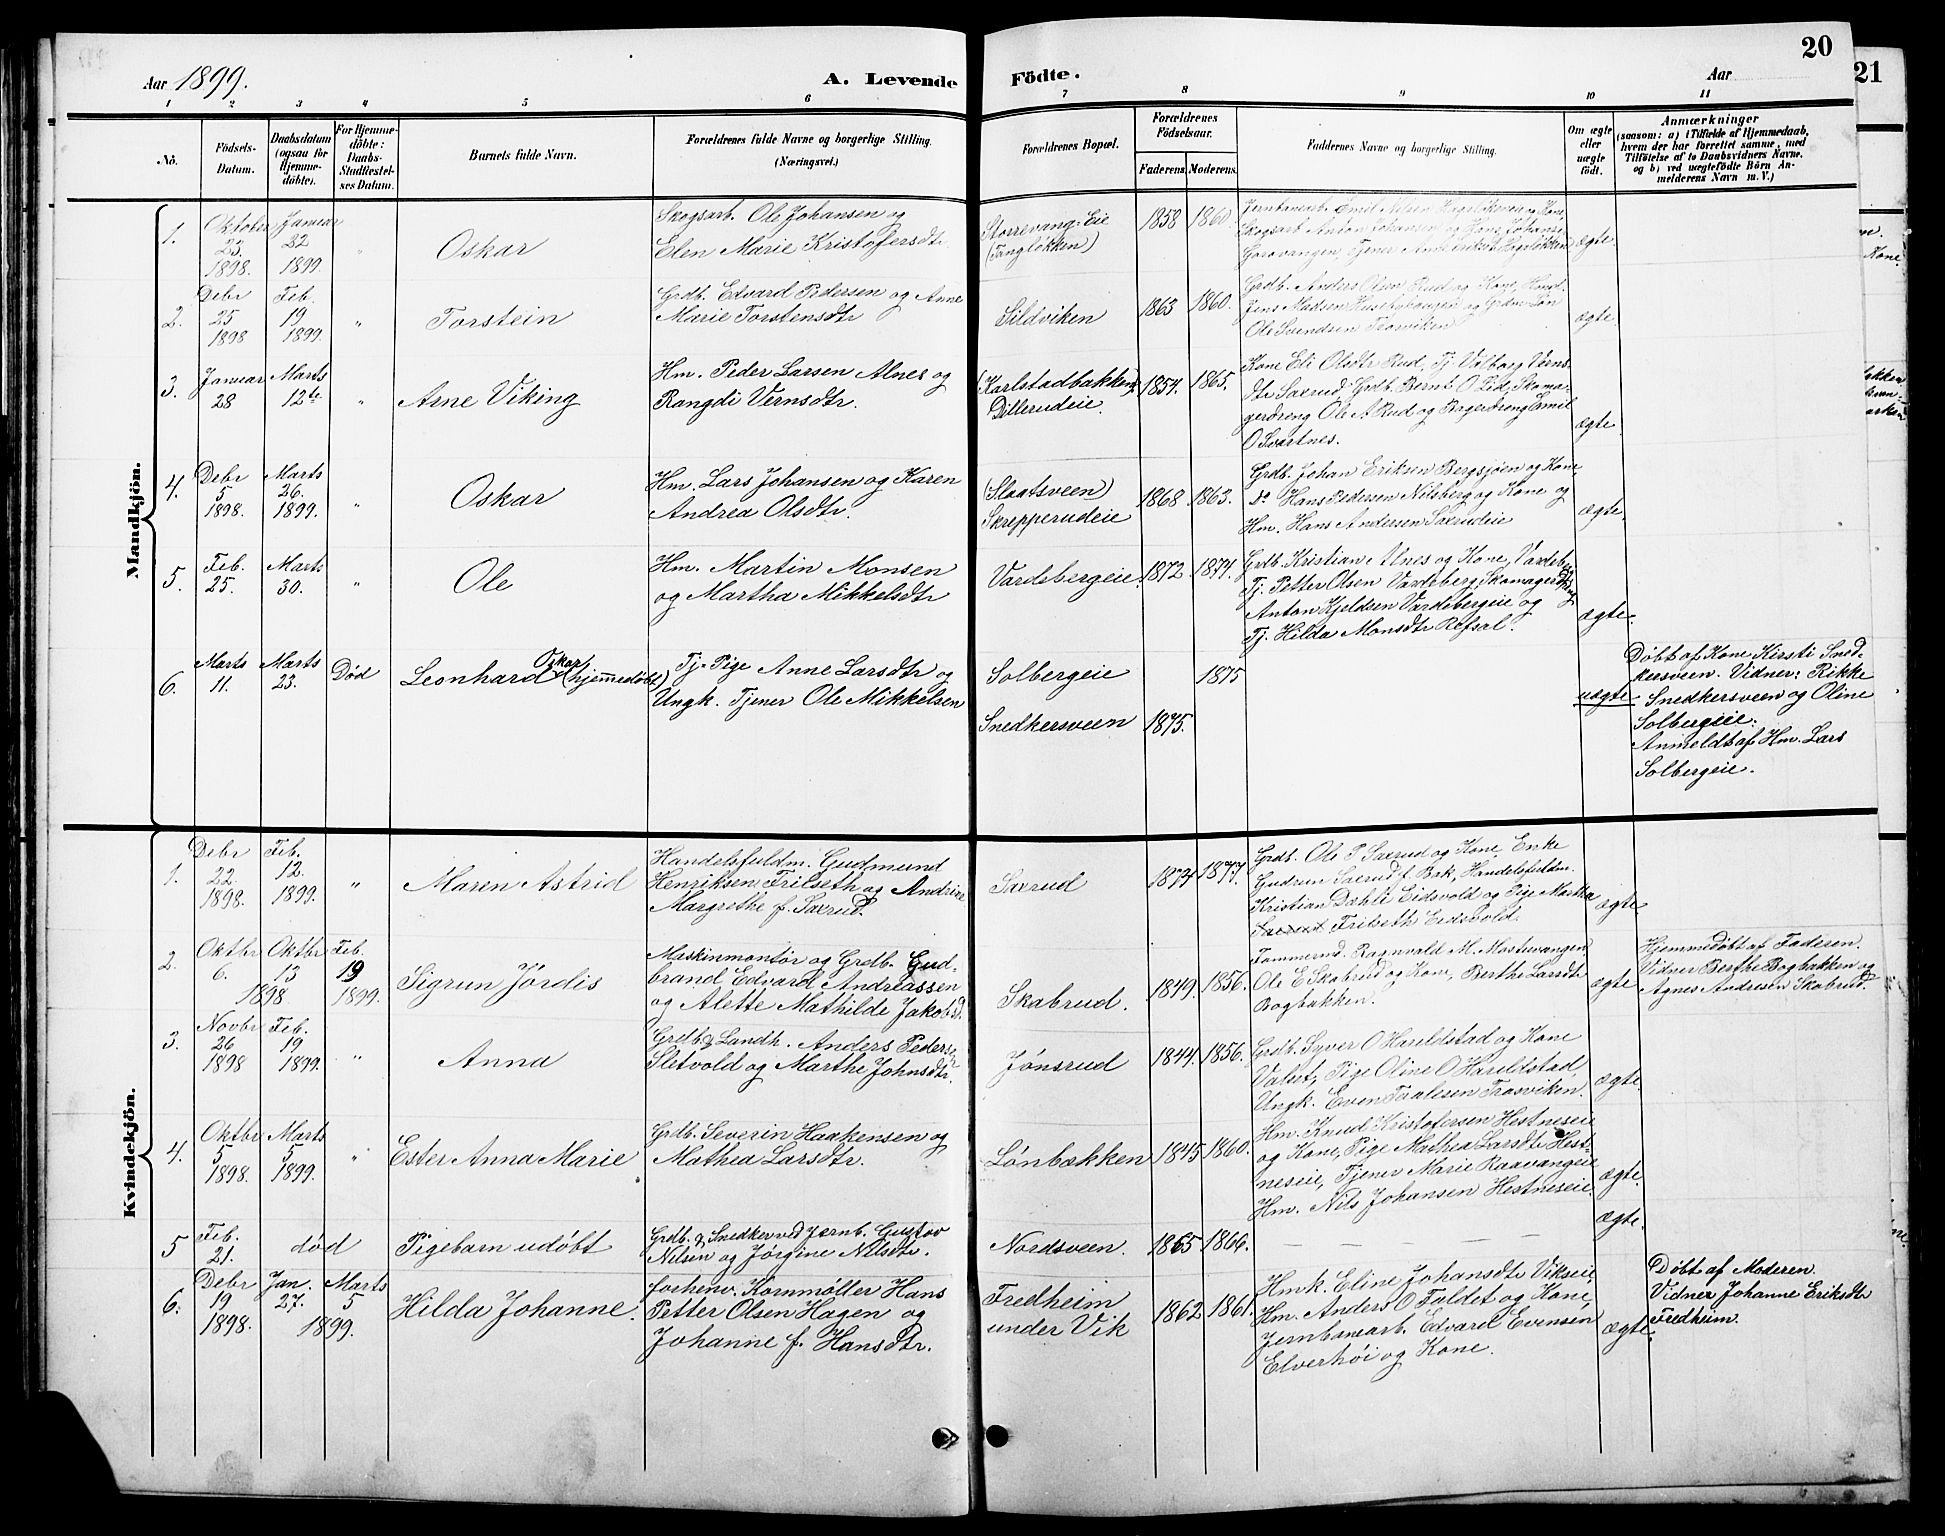 20
21
Aar 1899.
A. Levende Födte.
Aar
1 2 3 4 5 6 7 8 9 10 11
No.
Födsels-Datum.
Daabsdatum (ogsaa for Hjemme-döbte).
For Hjemme-döbte: Daabs-Stadfæstel-ses Datum.
Barnets fulde Navn.
Forældrenes fulde Navne og borgerlige Stilling.
(Næringsvei.)
Forældrenes Bopæl.
Forældrenes Födselsaar.
Faderens. Moderens.
Faddernes Navne og borgerlige Stilling.
Om ægte eller uægte födt.
Anmærkninger
(saasom: a) i Tilfælde af Hjemmedaab,
hvem der har forrettet samme, med
Tilföielse af to Daabsvidners Navne.
og b) ved uægtefödte Börn An-
melderens Navn m. V.)
Mandkjön.
1.
Oktober
23.
1898.
Januar
22
1899.
"
Oskar
Skogsarb. Ole Johansen og
Elen Marie Kristofersdtr
Storrevang Eie
(Tangløkken)
1858 1860.
Skogsarb Anton Johansen og Kone
ægte
2.
Debr
25
1898
Feb.
19
1899.
"
Torstein
Grdb. Edvard Pedersen og Anne
Marie Torstensdtr
Sildviken
1863 1860.
Grdb. Anders Olsen Rud og Kone,
Jens Madsen
Ole Svendsen Trosviken
ægte.
3.
Januar
28
Marts
12te
"
Arne Viking
Hm. Peder Larsen Alnes og
Rangdi Vernsdtr.
(Karlstadbakken)
Dillerudeie.
1854. 1865.
Kone Eli Olsdtr Rud, Tj. Valborg Verns-
dtr Saxrud, Grdb. Bernt O Lid, Skoma-
gerdreng Ole A Rud og Bagerdreng Emil
O Svartnes.
ægte.
4.
Debr
5
1898.
Marts
26.
1899.
"
Oskar
Hm. Lars Johansen og Karen
Andrea Olsdtr.
(Slaatsveen)
Skrepperudeie
1868 1863.
Grdb. Johan Eriksen Bergsjøen og Kone,
Do Hans Pedersen Nilsberg og Kone og
Hm. Hans Andersen Saxrudeie
ægte.
5.
Feb.
25.
Marts
30.
"
Ole
Hm. Martin Monsen
og Martha Mikkelsdtr
Vardebergeie.
1872. 1874.
Grdb. Kristian Alnes og Kone, Vardeberg
Tj. Petter Olsen Vardeberg, Skomagerdreng
Anton Kjeldsen Vardebergeie og
Tj. Hilda Monsdtr Refsal.
ægte.
6.
Marts
11.
Marts
23.
Død
Oskar
Leonhard (hjemmedøbt)
Tj. Pige Anne Larsdtr og
Ungk. Tjener Ole Mikkelsen
Solbergeie
Snedkersveen
1875
1875.
uægte
Døbt af Kone Kirsti Sned-
kersveen. Vidner: Rikke
Snedkersveen og Oline
Solbergeie.
Anmeldt af Hm. Lars
Solbergeie.
Kvindekjön.
1.
Debr
22.
1898.
Feb.
12.
1899.
"
Maren Astrid
Handelsfuldm. Gudmund
Henriksen Frilseth og Andrine
Margrethe f. Saxrud.
Saxrud
1874 1877.
Grdb. Ole P Saxrud og Kone, Enke
Gudrun Saxrud f. Bak, Handelsfuldm.
Kristian Dæhli Eidsvold og Pige Martha
Saxrud Frilseth Eidsvold.
ægte.
2.
Oktbr
6.
Oktbr
13
1898
Feb.
19
1899.
Sigrun Jørdis
Maskinmontør og Grdb. Gud-
brand Edvard Andreassen
og Alette Mathilde Jakobsd.
Skabrud.
1849. 1856.
Tømmermd. Ragnvald M. Mostuevangen,
Ole E Skabrud og Kone, Berthe Larsdtr
Bogbakken.
ægte
Hjemmedøbt af Faderen.
Vidner Berthe Bogbakken og
Agnes Andresen Skabrud.
3.
Novbr
26
1898
Feb.
19
1899.
"
Anna
Grdb. & Landh. Anders Pedersen
Sletvold og Marthe Johnsdtr.
Jønsrud
1844. 1856.
Grdb. Syver O Hareldstad og Kone
Valset, Pige Oline O Hareldstad,
Ungk. Even Taalesen Trosviken.
ægte.
4.
Oktbr
5
1898.
Marts
5
1899.
"
Ester Anna Marie
Grdb. Severin Haakensen og
Mathea Larsdtr.
Lønbækken
1845 1860.
Hm. Knud Kristofersen Hestneseie
og Kone, Pige Mathea Larsdtr Hest-
neseie, Tjener Marie Raavangeie
Hm. Nils Johansen Hestneseie.
ægte.
5
Feb.
21.
død
Pigebarn udøbt
Grdb. & Snedker ved Jernb. Gustav
Nilsen og Jørgine Nilsdtr.
Nordsveen.
1865 1866.
ægte.
6.
Debr
19
1898.
Jan.
27.
Marts
5
1899.
Hilda Johanne.
forhenv. Kornmøller Hans
Petter Olsen Hagen og
Johanne f. Hansdtr.
Fredheim
under Vik
1862 1861.
Hmk. Eline Johansdtr Vikseie,
Hm. Anders O Faldet og Kone,
Jernbanearb. Edvard Evensen
Elverhøi og Kone.
ægte.
Døbt af Moderen.
Vidner Johanne Eriksdtr
Fredheim.